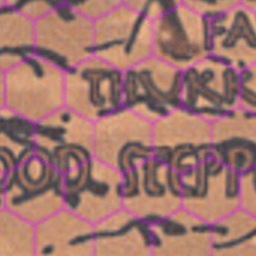 FA
THVKK
OOD STEPP